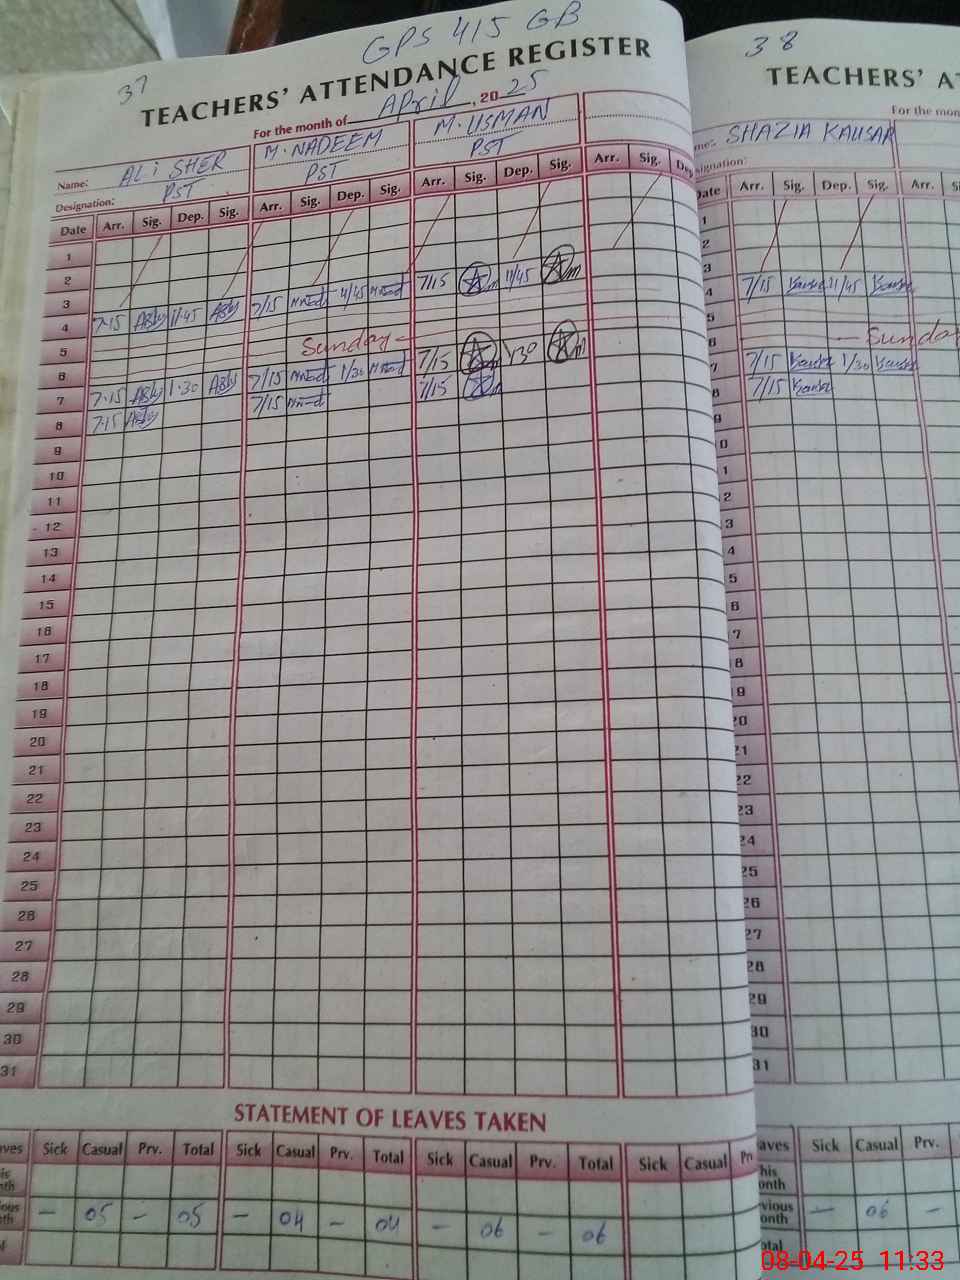 GPS 415 GB
37
TEACHERS' ATTENDANCE REGISTER
For the month of April, 2025
Name: ALI SHER M. NADEEM M. USMAN
Designation: PST PST PST
Date Arr. Sig. Dep. Sig. Arr. Sig. Dep. Sig. Arr. Sig. Dep. Sig. Arr. Sig. Dep.
1
2
3
4 7-15 11/45 7/15 11/45 7/15 11/45
5
6 Sunday
7 7-15 1-30 7/15 1/30 7/15 1/30
8 7-15 7/15 7/15
9
10
11
12
13
14
15
16
17
18
19
20
21
22
23
24
25
26
27
28
29
30
31
STATEMENT OF LEAVES TAKEN
aves Sick Casual Prv. Total Sick Casual Prv. Total Sick Casual Prv. Total Sick Casual Pr
his nth
ious nth — 05 — 05 — 04 — 04 — 06 — 06
38
TEACHERS' AT
For the mon
me: SHAZIA KAUSAR
signation:
ate Arr. Sig. Dep. Sig. Arr. Si
1
2
3
4 7/15 Kausar 11/45 Kausar
5
6 Sunday
7 7/15 Kausar 1/30 Kausar
8 7/15 Kausar
9
0
1
2
3
4
5
6
7
8
9
20
21
22
23
24
25
26
27
28
29
30
31
eaves Sick Casual Prv.
his onth
vious onth — 06 —
otal
08-04-25 11:33